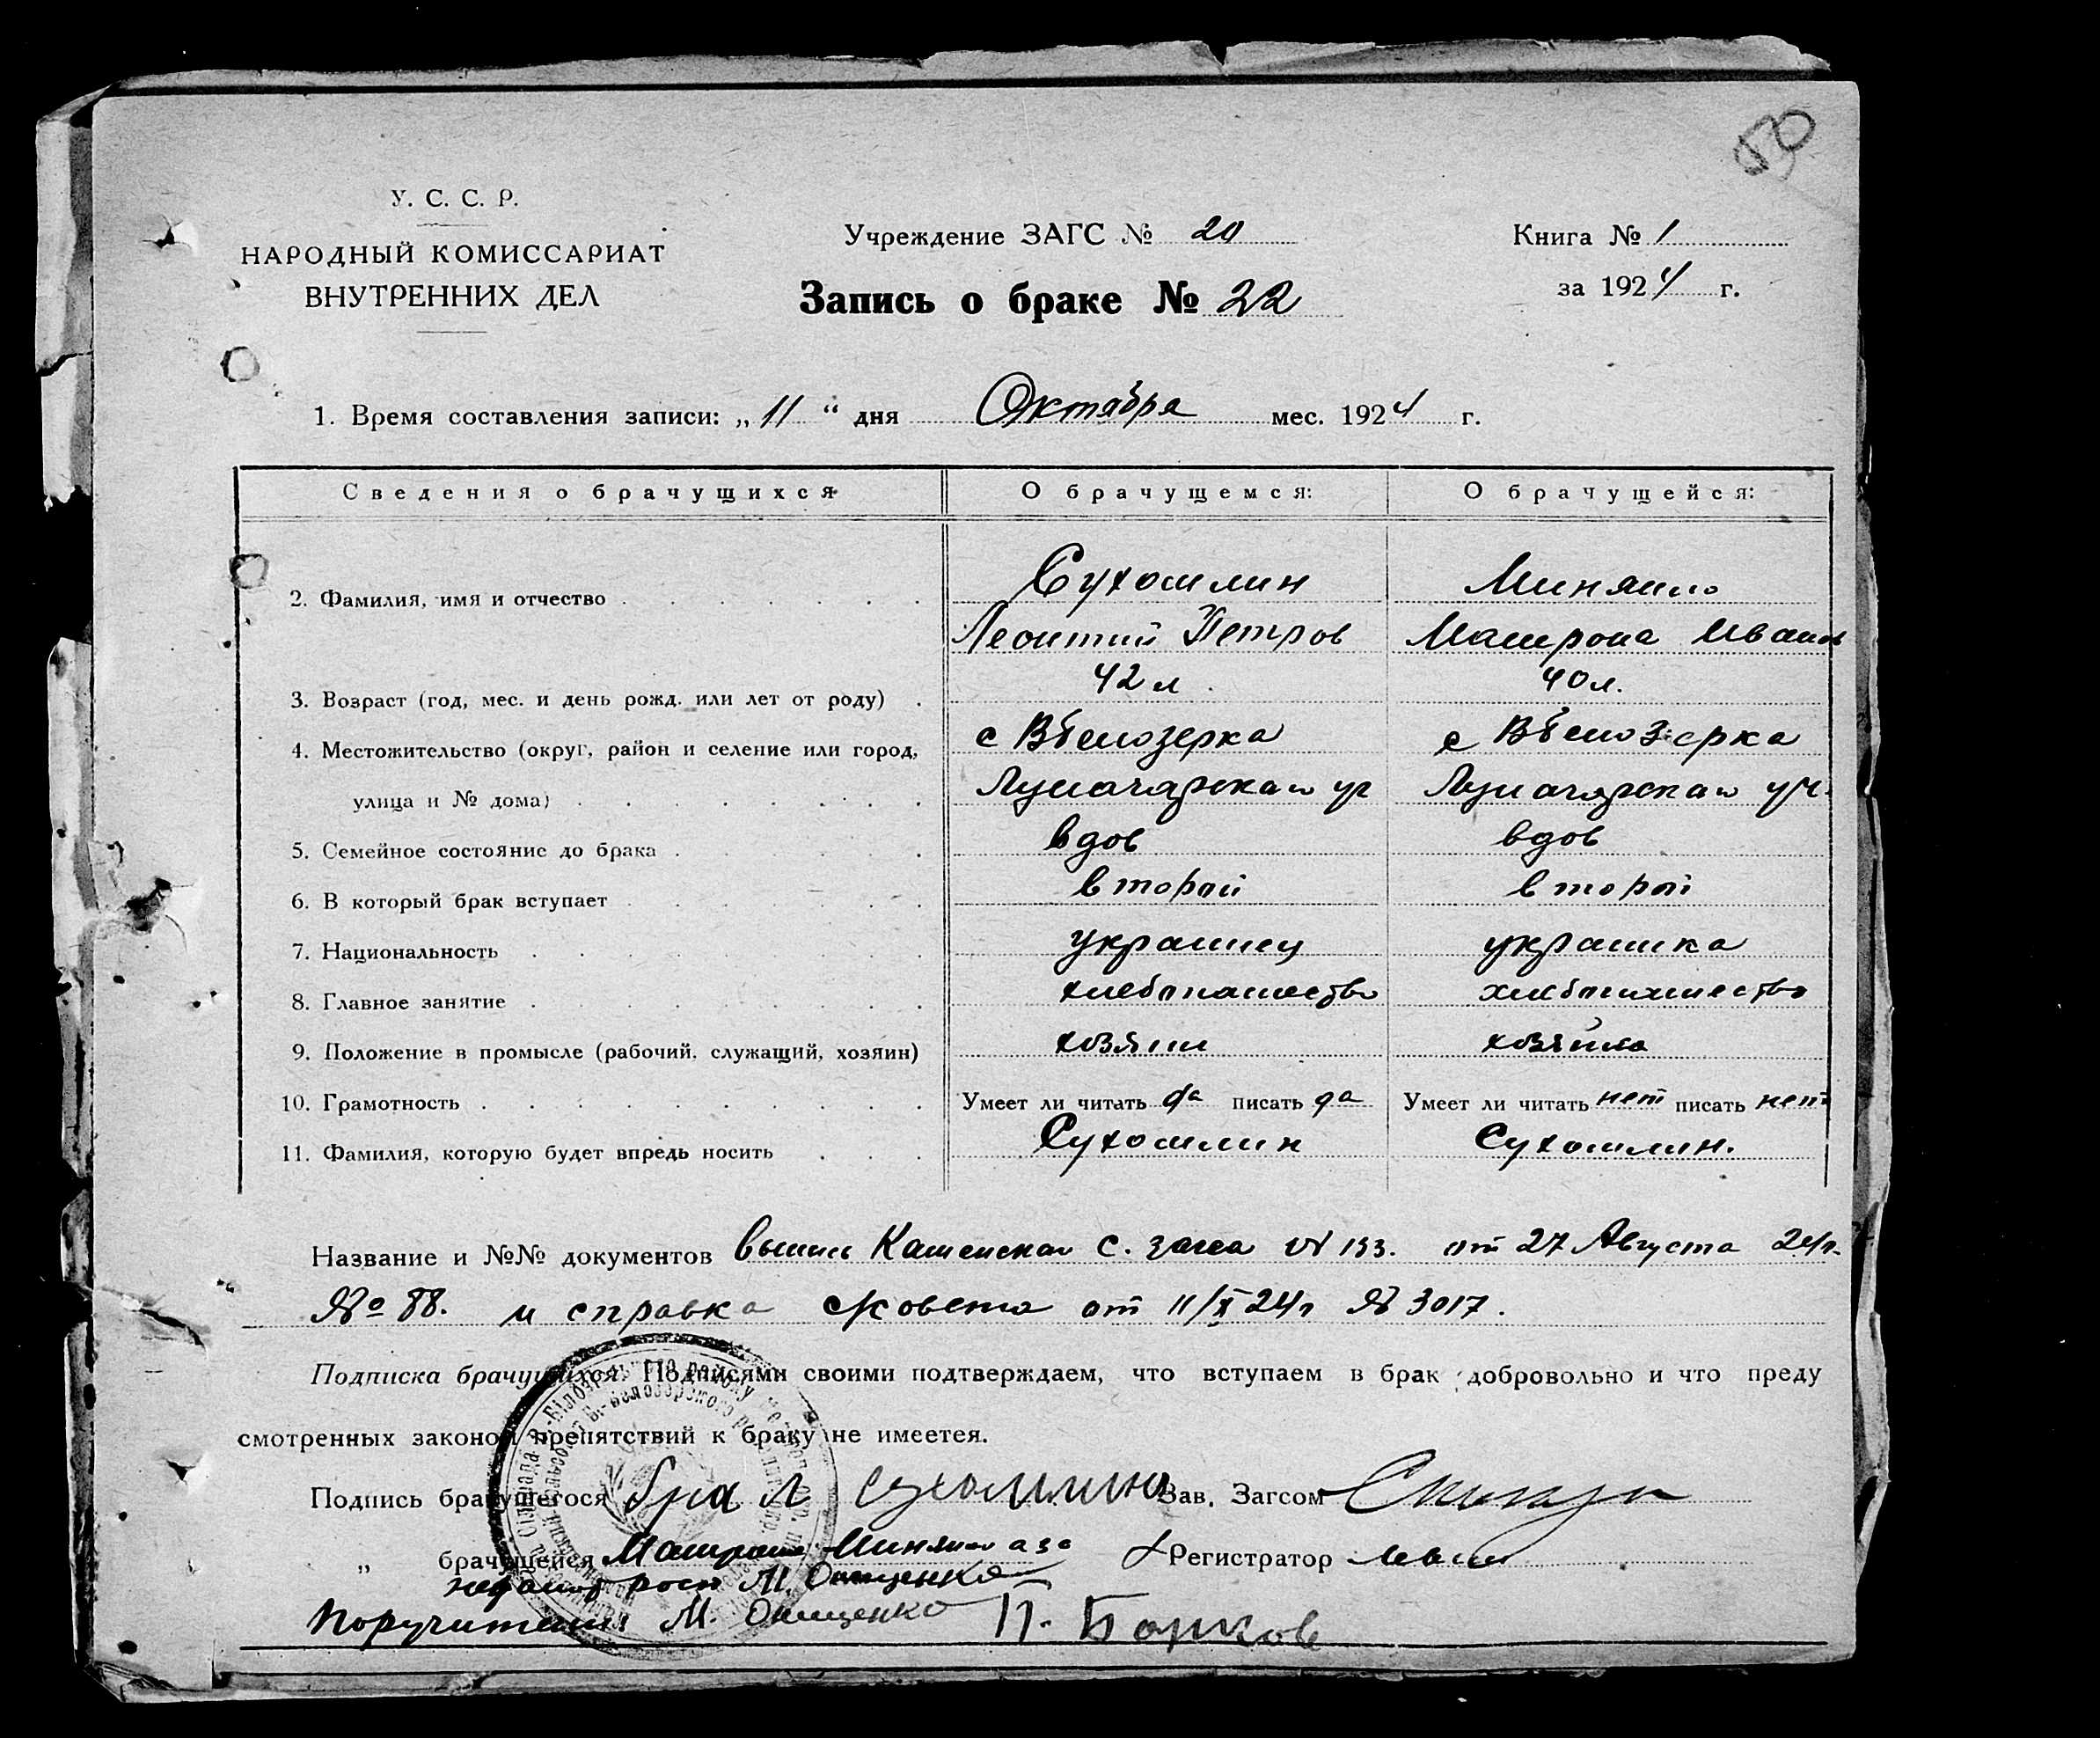 50
У. С. С. Р.
НАРОДНЫЙ КОМИССАРИАТ
ВНУТРЕННИХ ДЕЛ
Учреждение ЗАГС № 20
Запись о браке № 22
Книга № 1
за 1924 г.
1. Время составления записи: „ 11 “ дня Октября мес. 1924 г.
Сведения о брачущихся О брачущемся: О брачущейся:
2. Фамилия, имя и отчество Сухомлин Миняйло
Леонтий Петров Матрона Иванов
3. Возраст (год, мес. и день рожд. или лет от роду) 42 л. 40 л.
4. Местожительство (округ, район и селение или город, с Вбелозерка с Вбелозерка
улица и № дома) Луначарская ул Луначарская ул.
5. Семейное состояние до брака вдов вдов
6. В который брак вступает второй второй
7. Национальность украинец украинка
8. Главное занятие хлебопашество хлебопашество
9. Положение в промысле (рабочий, служащий, хозяин) хозяин
10. Грамотность Умеет ли читать да писать да Умеет ли читать нет писать нет
11. Фамилия, которую будет впредь носить Сухомлин Сухомлин.
Название и №№ документов выпись с. загса № 133. от 27 Августа 24 г.
№ 88. и справка от 11/X 24 г № 3017.
Подписка брачущихся. Подписями своими подтверждаем, что вступаем в брак добровольно и что преду
смотренных законом препятствий к браку не имеетея.
Подпись брачущегося Л Сухомлин Зав. Загсом
„ брачущейся Матрона Миняйло а за Регистратор
неграмот росп М. Онищенко
Поручители М. Онищенко П.